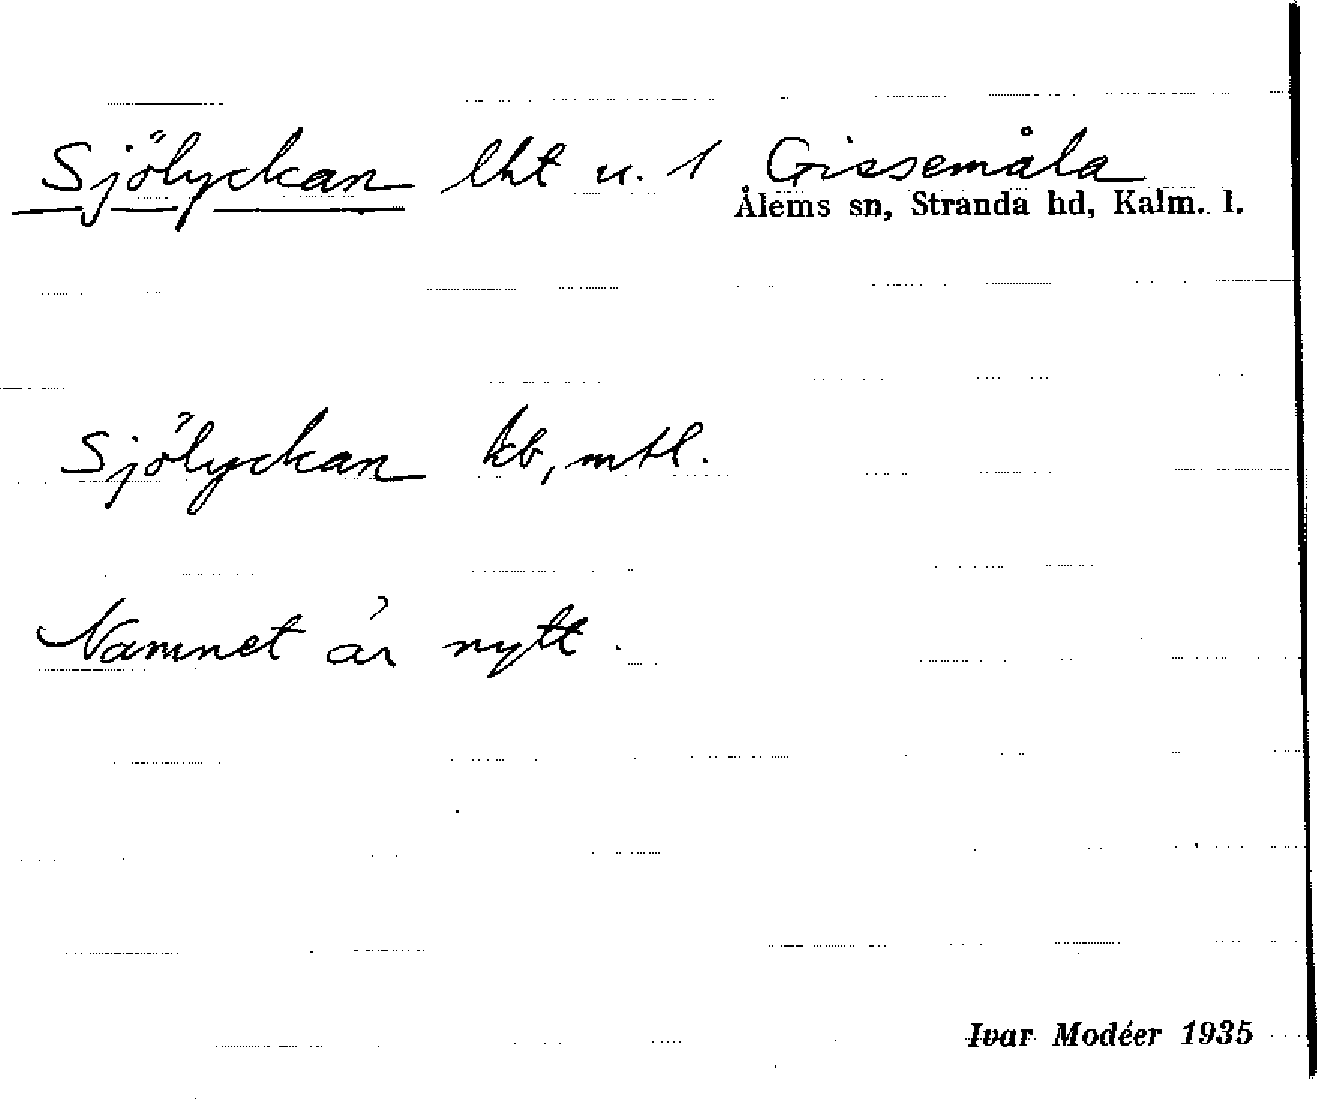 Sjölyckan lht u. 1 Gissemåla
Ålems sn, Stranda hd, Kalm. l.
Sjölyckan kb, mtl.
Namnet är nytt.
Ivar Modéer 1935